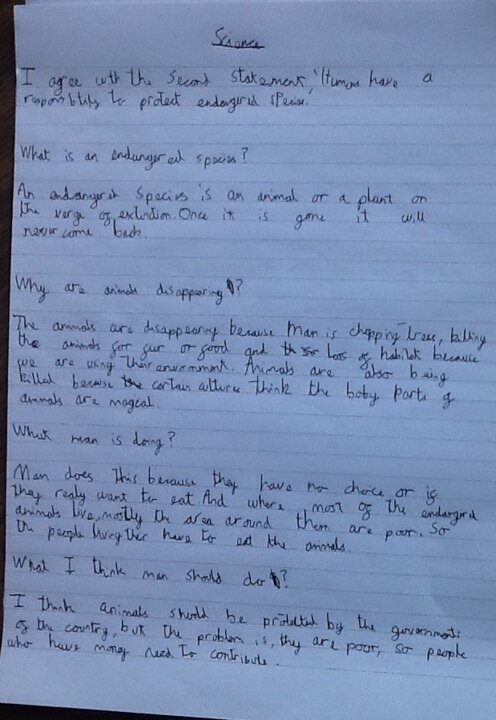 Science
I agree with the second statement, 'Humans have a
responsibility to protect endangered species.'
What is an endangered species?
An endangered species is an animal or a plant on
the verge of extinction. Once it is gone it will
never come back.
Why are animals disappearing?
The animals are disappearing because Man is chopping trees, killing
the animals for fur or food and the for los of habitat because
we are using their environment. Animals are also being
killed because the certain cultures think the body parts of
animals are magical.
What man is doing?
Man does this because they have no choice or if
they really want to eat. And where most of the endangered
animals live, mostly the area around them are poor. So
the people living ther have to eat the animals.
What I think man should do?
I think animals should be protected by the governments
of the country, but the problem is, they are poor, so people
who have money need to contribute.